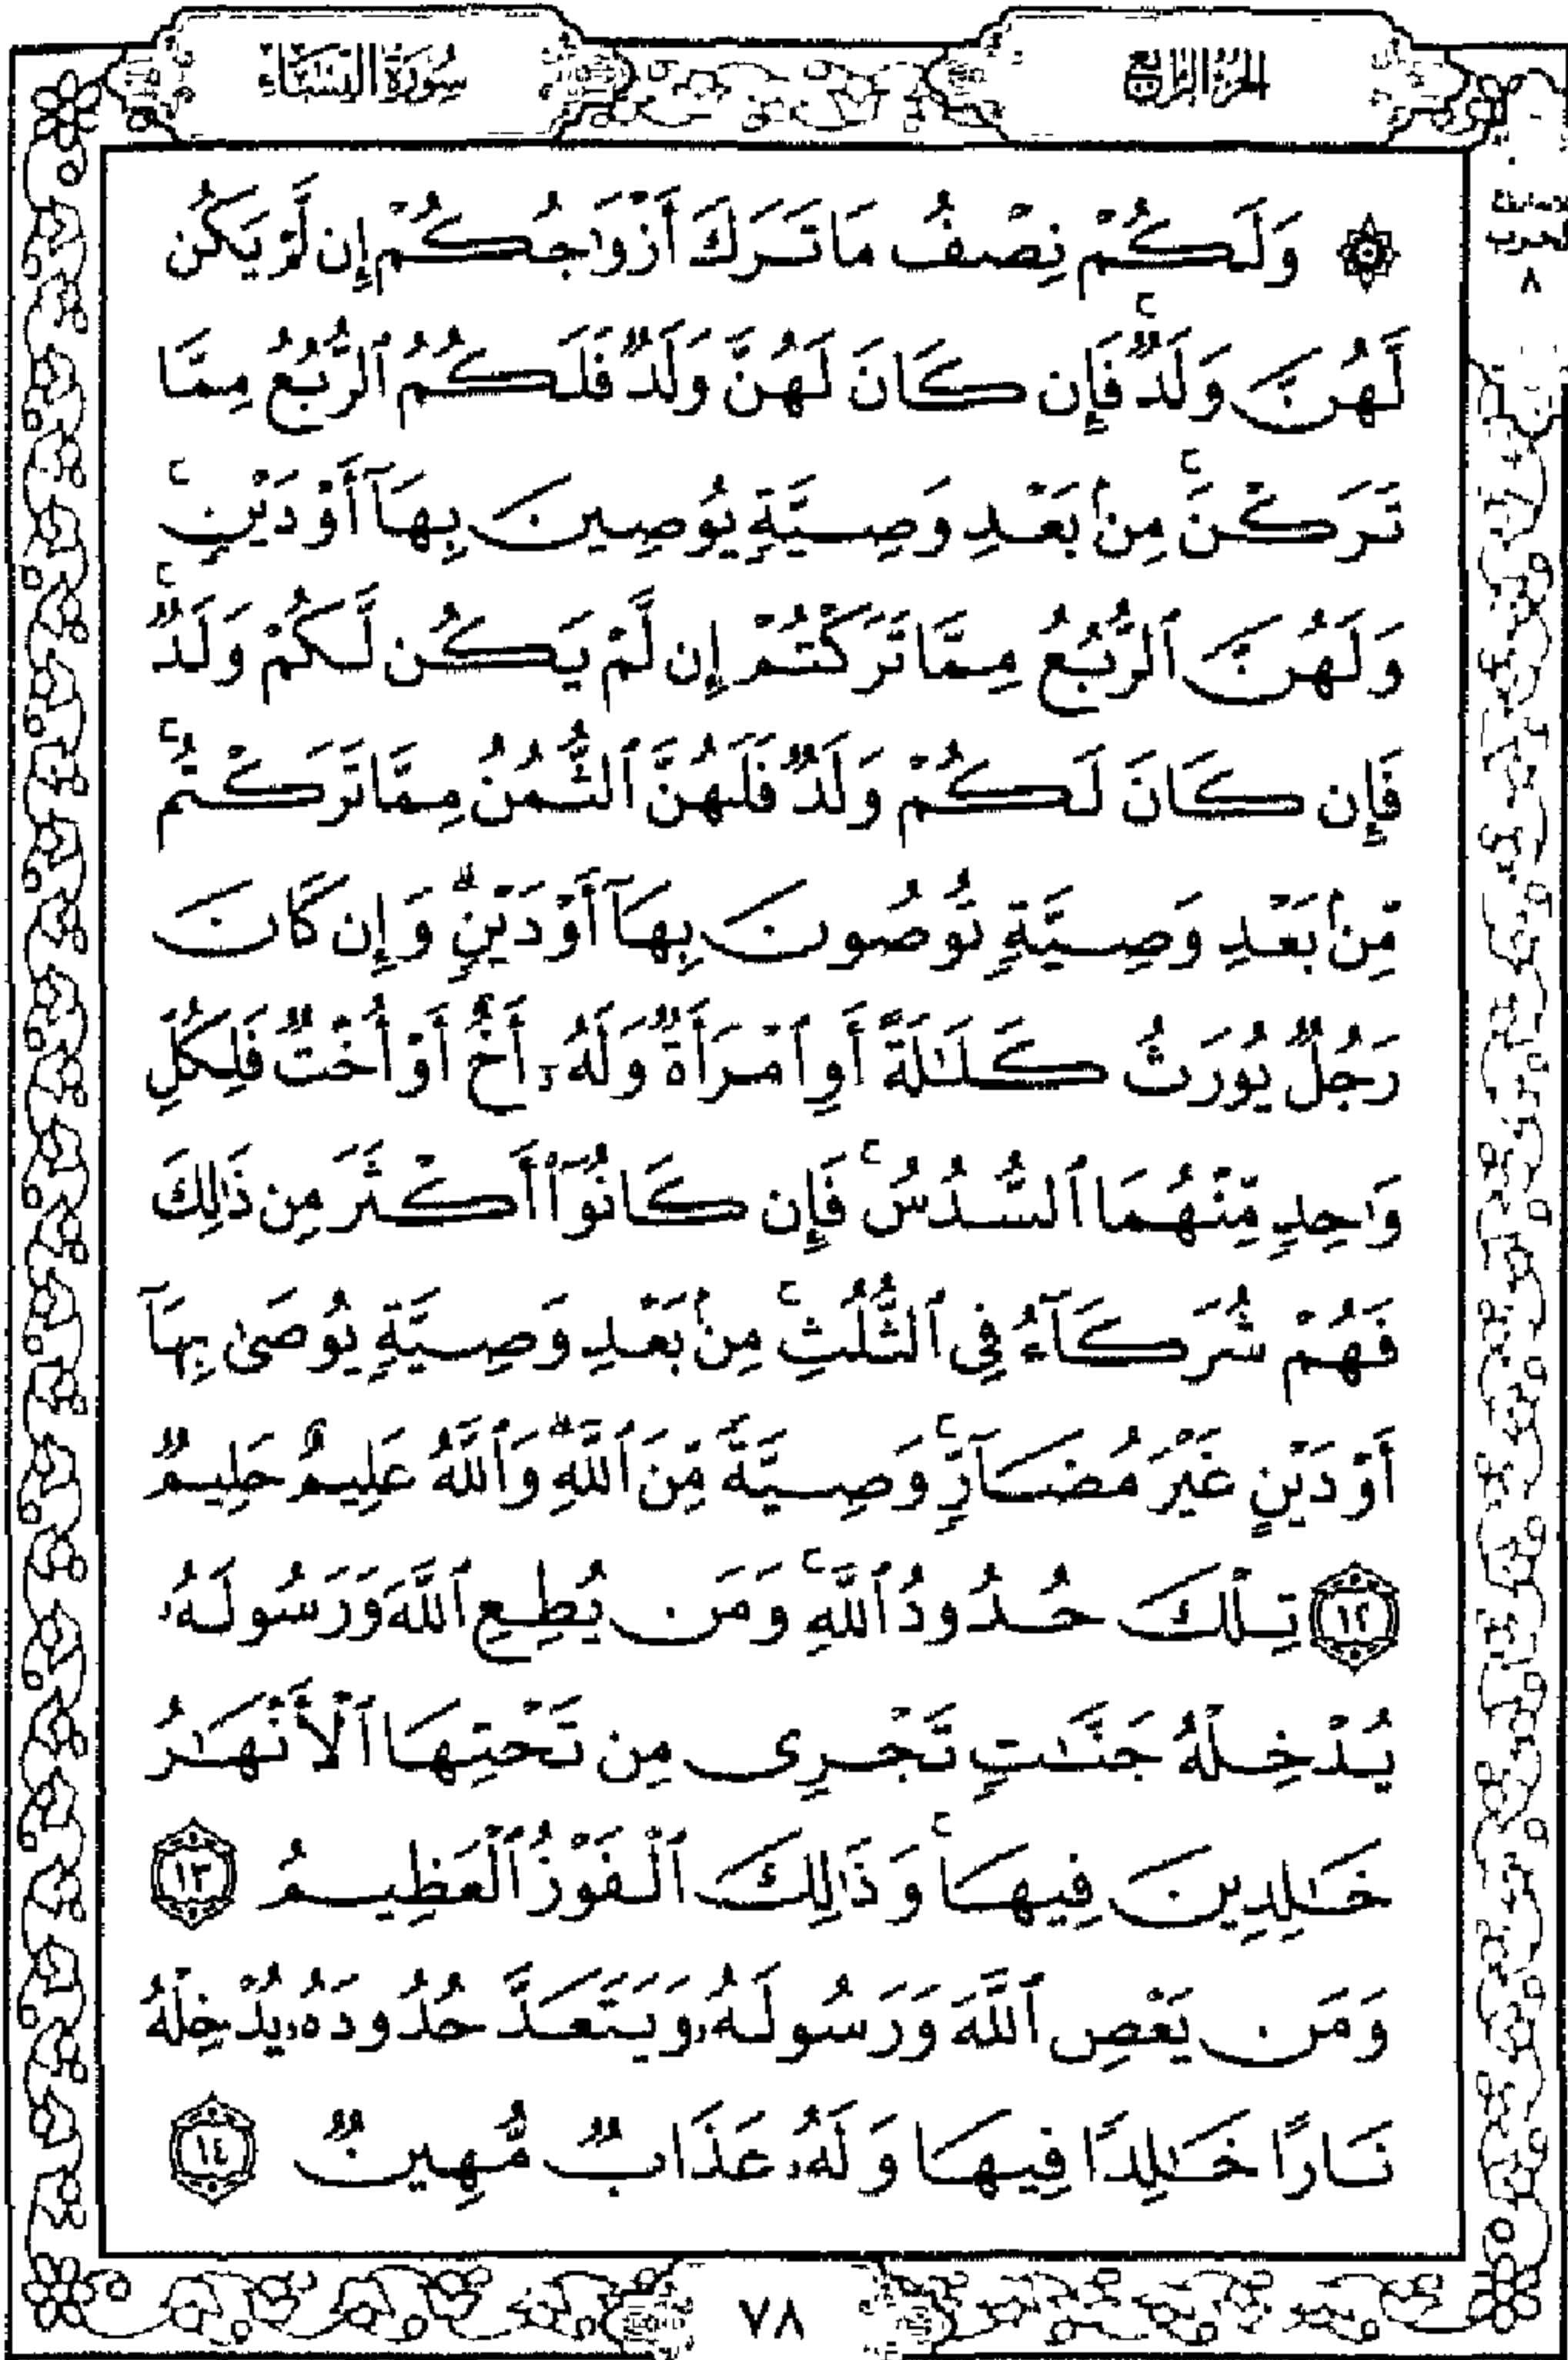 الجزء الرابع
سورة النساء
الحزب
٨
۞ وَلَكُمْ نِصْفُ مَا تَرَكَ أَزْوَٰجُكُمْ إِن لَّمْ يَكُن
لَّهُنَّ وَلَدٌ ۚ فَإِن كَانَ لَهُنَّ وَلَدٌ فَلَكُمُ ٱلرُّبُعُ مِمَّا
تَرَكْنَ ۚ مِنۢ بَعْدِ وَصِيَّةٍ يُوصِينَ بِهَآ أَوْ دَيْنٍ ۚ
وَلَهُنَّ ٱلرُّبُعُ مِمَّا تَرَكْتُمْ إِن لَّمْ يَكُن لَّكُمْ وَلَدٌ ۚ
فَإِن كَانَ لَكُمْ وَلَدٌ فَلَهُنَّ ٱلثُّمُنُ مِمَّا تَرَكْتُم ۚ
مِّنۢ بَعْدِ وَصِيَّةٍ تُوصُونَ بِهَآ أَوْ دَيْنٍ ۗ وَإِن كَانَ
رَجُلٌ يُورَثُ كَلَـٰلَةً أَوِ ٱمْرَأَةٌ وَلَهُۥٓ أَخٌ أَوْ أُخْتٌ فَلِكُلِّ
وَٰحِدٍ مِّنْهُمَا ٱلسُّدُسُ ۚ فَإِن كَانُوٓا۟ أَكْثَرَ مِن ذَٰلِكَ
فَهُمْ شُرَكَآءُ فِى ٱلثُّلُثِ ۚ مِنۢ بَعْدِ وَصِيَّةٍ يُوصَىٰ بِهَآ
أَوْ دَيْنٍ غَيْرَ مُضَآرٍّ ۚ وَصِيَّةً مِّنَ ٱللَّهِ ۗ وَٱللَّهُ عَلِيمٌ حَلِيمٌ
١٢ تِلْكَ حُدُودُ ٱللَّهِ ۚ وَمَن يُطِعِ ٱللَّهَ وَرَسُولَهُۥ
يُدْخِلْهُ جَنَّـٰتٍ تَجْرِى مِن تَحْتِهَا ٱلْأَنْهَـٰرُ
خَـٰلِدِينَ فِيهَا ۚ وَذَٰلِكَ ٱلْفَوْزُ ٱلْعَظِيمُ ١٣
وَمَن يَعْصِ ٱللَّهَ وَرَسُولَهُۥ وَيَتَعَدَّ حُدُودَهُۥ يُدْخِلْهُ
نَارًا خَـٰلِدًا فِيهَا وَلَهُۥ عَذَابٌ مُّهِينٌ ١٤
٧٨